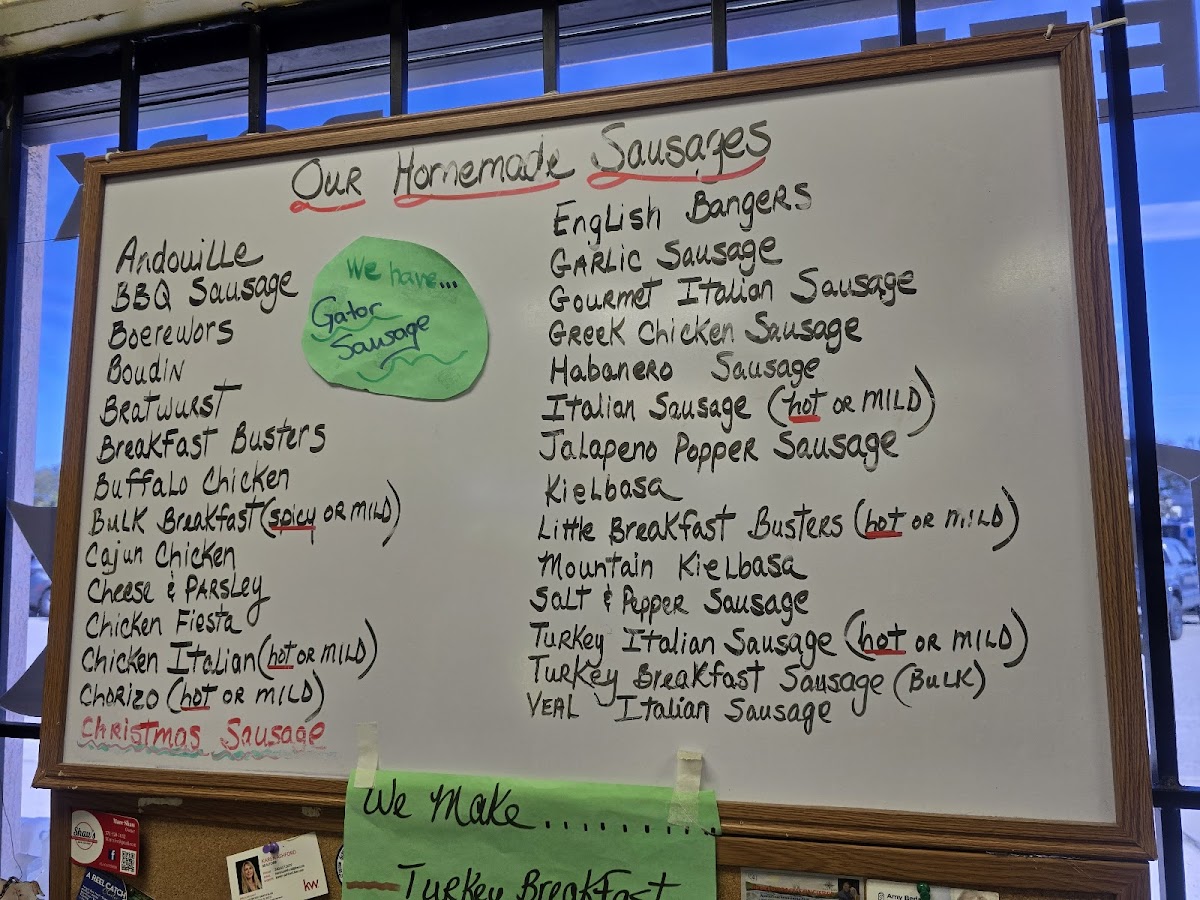 Our Homemade Sausages
Andouille
BBQ Sausage
Boerewors
Boudin
Bratwurst
Breakfast Busters
Buffalo Chicken
Bulk Breakfast (spicy or mild)
Cajun Chicken
Cheese & Parsley
Chicken Fiesta
Chicken Italian (hot or mild)
Chorizo (hot or mild)
Christmas Sausage
We have...
Gator
Sausage
English Bangers
Garlic Sausage
Gourmet Italian Sausage
Greek Chicken Sausage
Habanero Sausage
Italian Sausage (hot or mild)
Jalapeno Popper Sausage
Kielbasa
Little Breakfast Busters (hot or mild)
Mountain Kielbasa
Salt & Pepper Sausage
Turkey Italian Sausage (hot or mild)
Turkey Breakfast Sausage (Bulk)
Veal Italian Sausage
We Make..........
— Turkey Breakfast
Shaw's
A REEL CATCH
kw